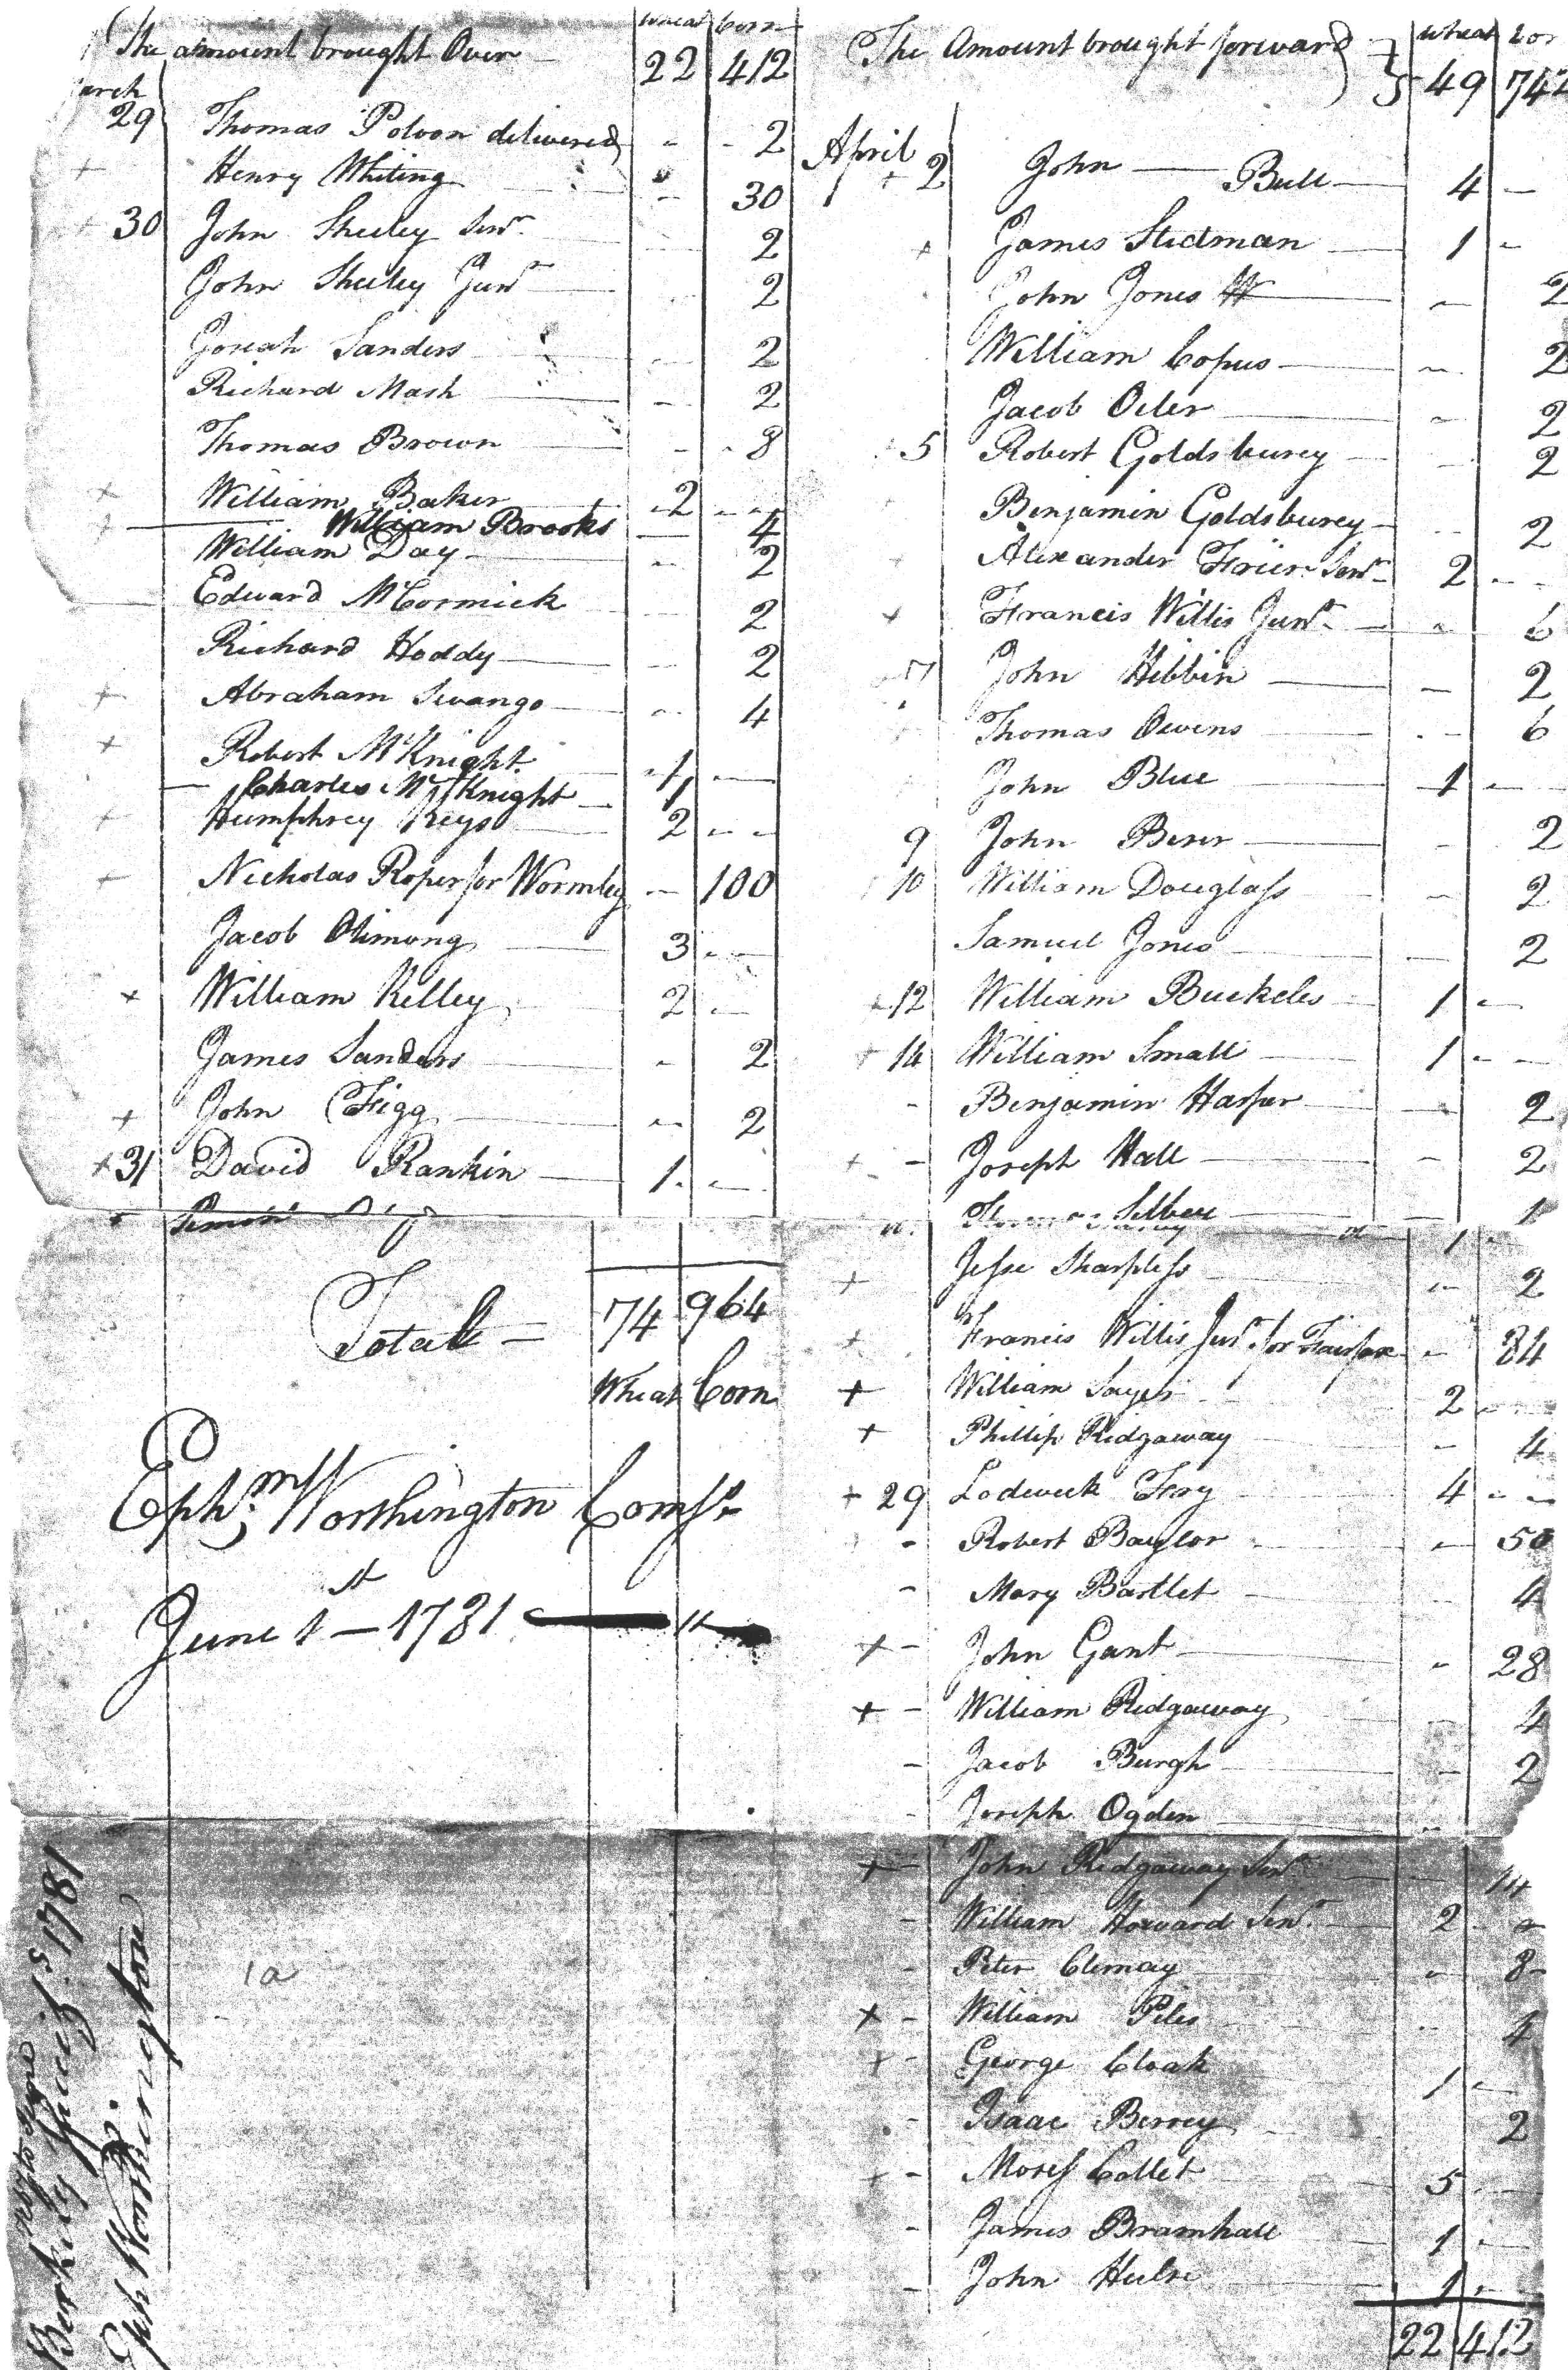 The amount brought Over wheat Corn 22 412
arch
29 Thomas Polson delivered - - 2
+ Henry Whiting - 30
+ 30 John Sheeley Senr. 2
John Sheeley Junr 2
Josiah Sanders 2
Richard Mash - 2
Thomas Brown - - 8
+ William Baker 2 - -
William Brooks 4
William Day - 2
Edward McCormick 2
Richard Hoddy - 2
+ Abraham Swango - 4
+ Robert McKnight 1 -
Charles McKnight 1
+ Humphrey Keys 2 - -
+ Nicholas Roper for Wormley - 100
Jacob 3 - -
+ William Kelley 2 -
James Sanders - 2
+ John Figg - 2
+ 31 David Rankin 1 -
Total = 74 964
Wheat Corn
Ephm. Worthington Comsr.
June 1st - 1781
1a
Berkeley 1781
Eph Worthington
The Amount brought forward } wheat Cor 49 742
April + 2 John Bull 4 -
+ James Stedman 1 -
John Jones W - 2
William Copus - 2
Jacob Oiler - 2
5 Robert Goldsburey - 2
Benjamin Goldsburey - - 2
+ Alexander Frier Senr 2 - -
+ Francis Willis Junr - 6
7 John Hibbin - 2
Thomas Owens - - 6
John Blue 1 -
9 John Beser - 2
10 William Douglass - 2
Samuel Jones - 2
+ 12 William Buckeles 1 -
+ 14 William Small 1 - -
- Benjamin Harper - 2
+ - Joseph Hall - 2
+ Jesse Sharpless - 2
+ Francis Willis Junr. for Fairfax - 84
+ William Sayers 2 -
+ Phillip Ridgaway - 4
+ 29 Lodwick Fry 4 - -
- Robert Baylor - 50
- Mary Bartlet 4
+ - John Gant - 28
+ - William Ridgaway 4
- Jacob Burgh - 2
- Joseph Ogden -
+ - John Ridgaway Senr. 14
- William Howard Senr. 2 -
- Peter Clemay - 8
+ - William Piles 4
+ - George Cloak 1 -
- Isaac Berrey 2
+ - Moses Collet 5
- James Bramhall 1 -
- John Hulse 1 -
22 412